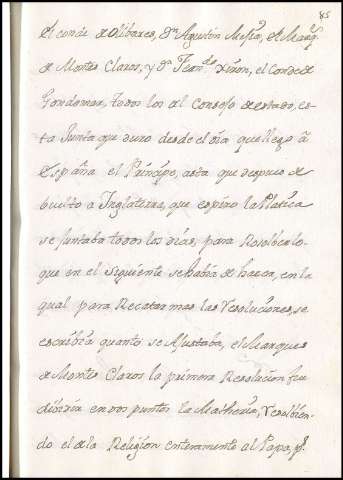 85
El conde de Olibares, Dn Agustin Mesia, el Marqs
de Montes Claros, y Dn Ferndo Xiron, el Conde de
Gondomar, todos los del Consejo de estado, es-
ta Junta que duro desde el dia que llego à
España el Principe, asta que despues de
buelto a Inglaterra, que espiro la Platica
se juntaba todos los dias, para Resolbe lo-
que en el siguiente se habia de hacer, en la
qual para Recatar mas las Resoluciones, se
escribia quanto se Ajustaba, el Marques
de Montes Claros la primera Resolucion fue
dibidir en dos puntos la Matheria, Resolbien-
do el de la Religion enteramente al Papa, pr